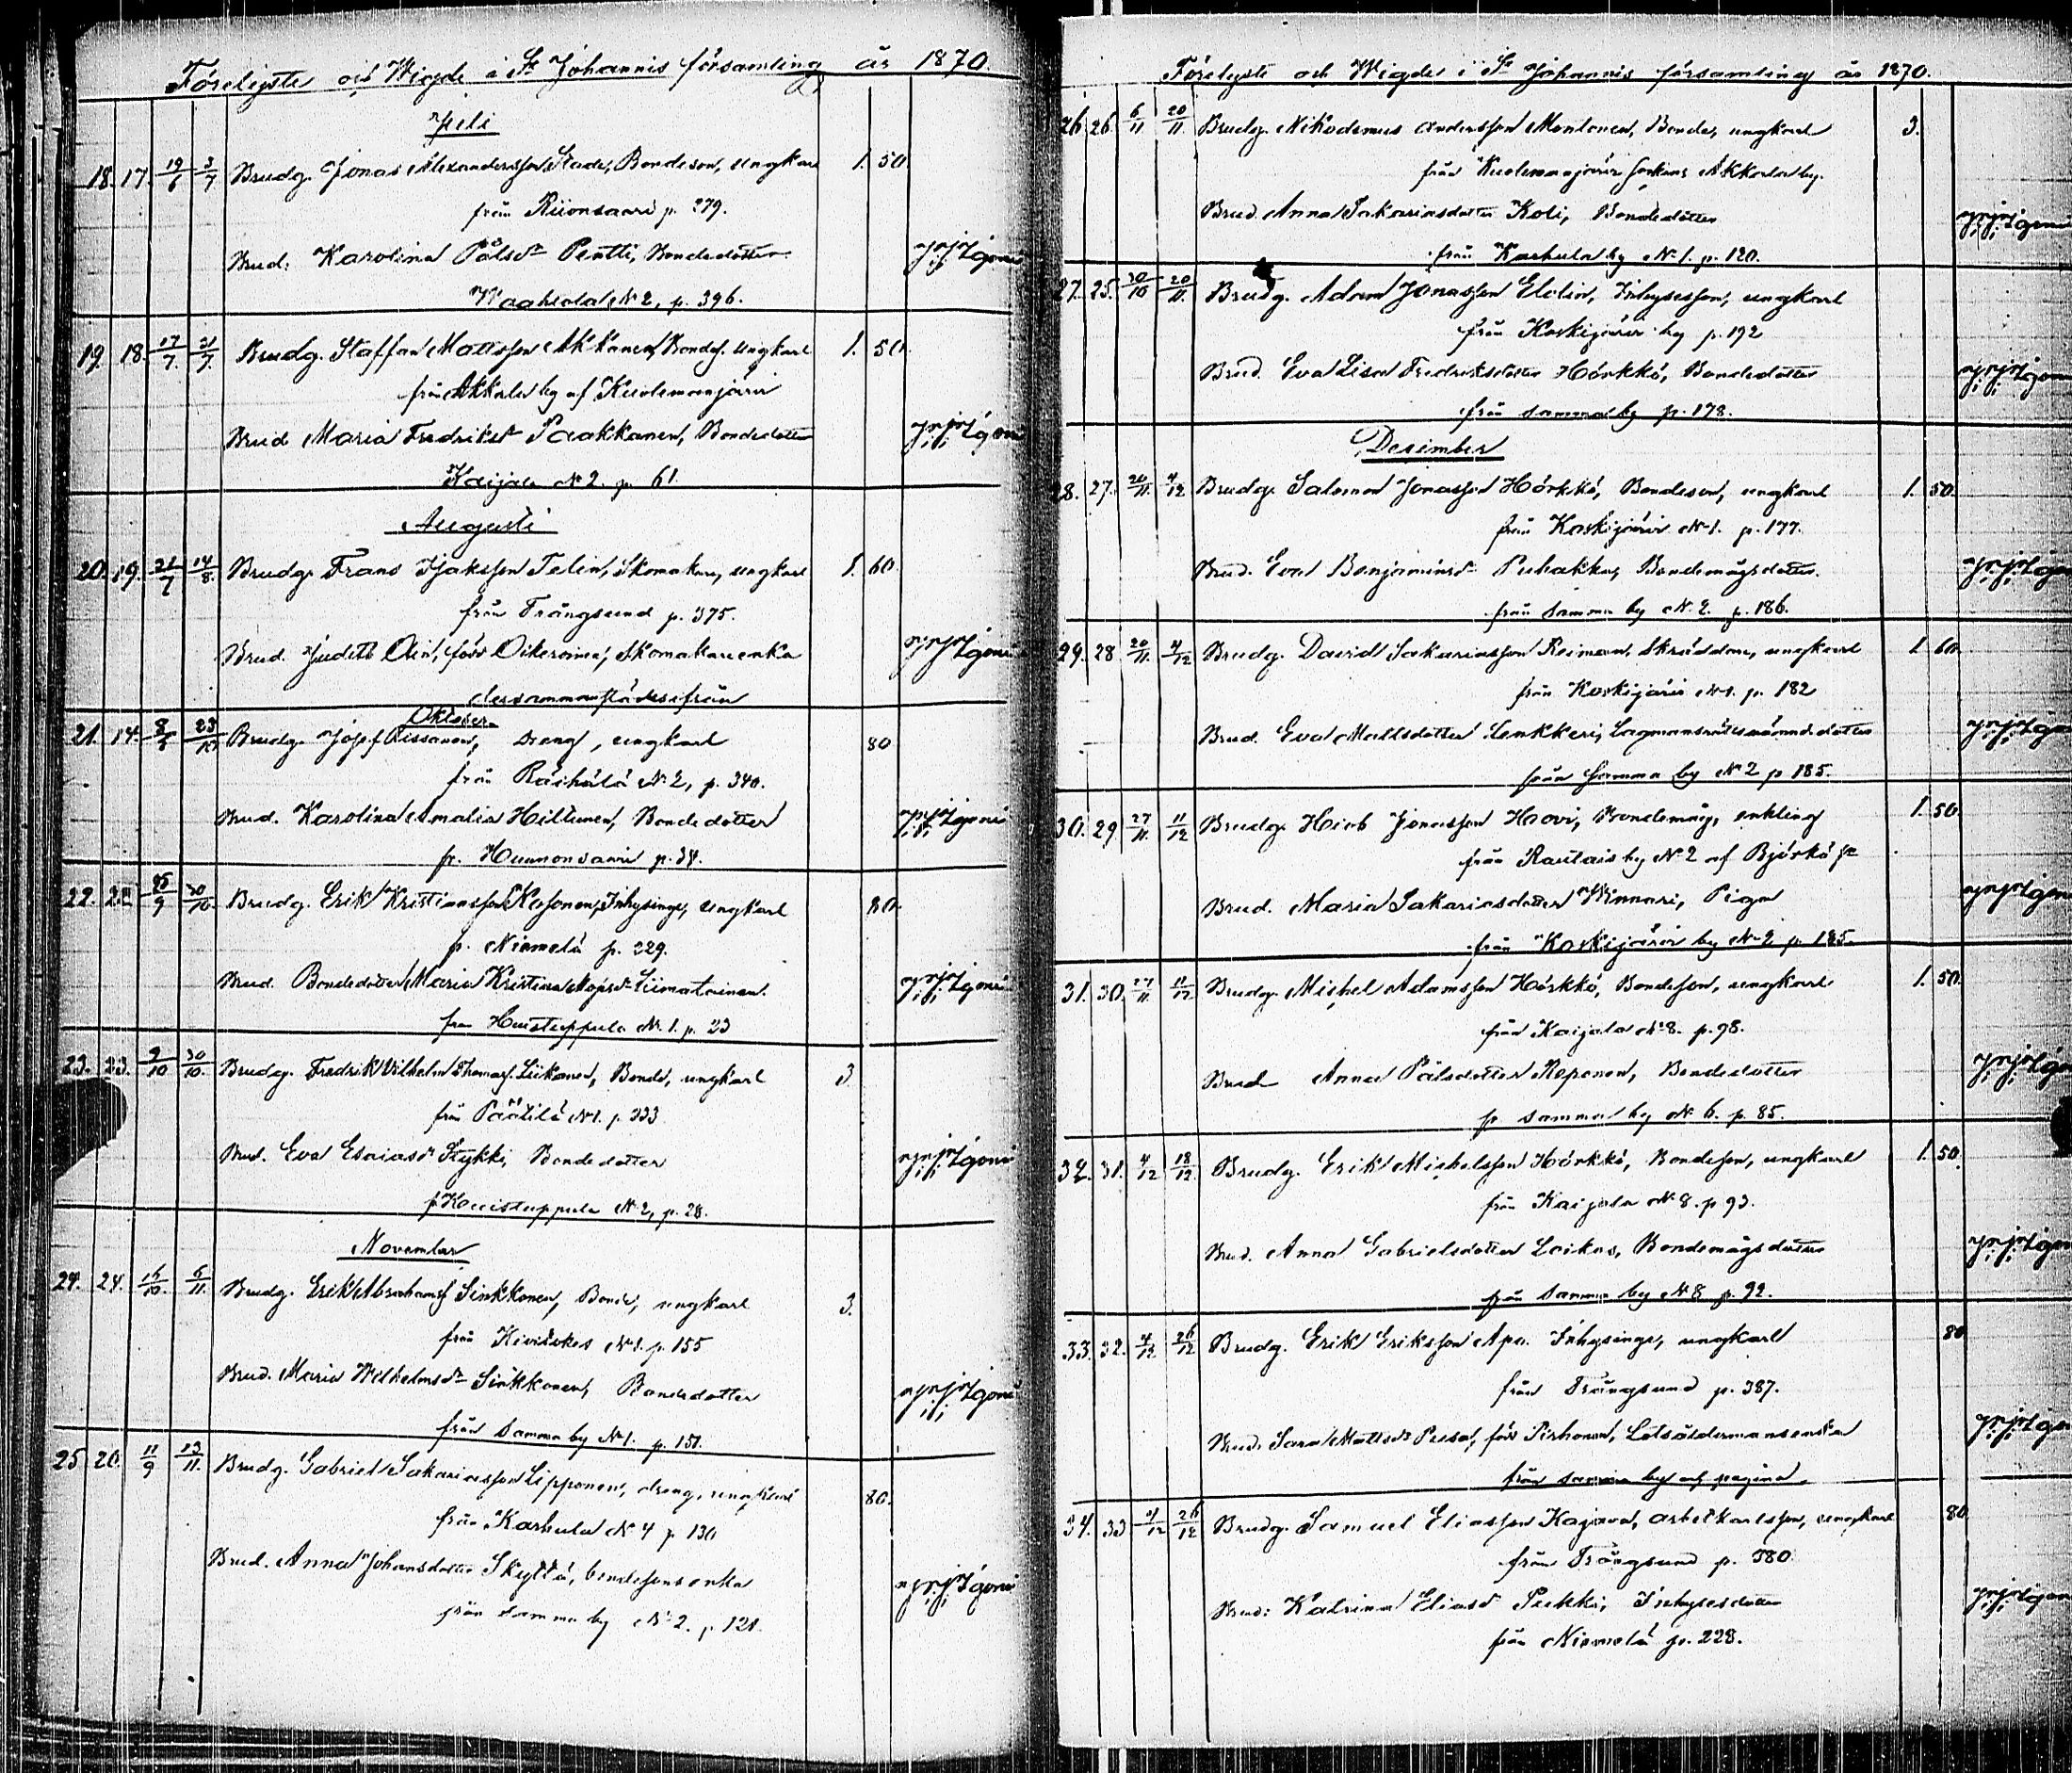 Förelyste och Wigde i St Johannis församling år 1870.
Juli
18. 17. 19/6 3/7 Brudg. Jonas Alexandersson Stade, Bondeson, ungkarl 1. 50
från Riionsaari p. 279.
Brud: Karolina Pålsdr Pentti, Bondedotter
Waahiola N 2, p. 396.
19. 18. 17/7 31/7 Brudg. Staffan Mattsson Akkanen Bondes. ungkarl 1. 50.
från Akkala by af Kuolemajärvi
Brud Maria Fredriksdr Paakkanen, Bondedotter
Kaijala N 2. p. 61.
Augusti
20. 19. 14/8. Brudg. Frans Isaksson Telin, Skomakare, ungkarl 1. 60.
från Trångsund p. 375.
Brud. Judith född Oikeroinen, Skomakareenka
dersammastädes ifrån
Oktober
21. 14. 23/10 Brudg. Josef Rissanen, dräng, ungkarl 80
från Räihälä N 2, p. 340.
Brud. Karolina Amalia Hiltunen, Bondedotter
fr. Huunonsaari p. 34.
22. 22 25/9 30/10. Brudg. Erik Kristiansson Kosonen, Inhysinge, ungkarl 80.
fr. Niemelä p. 229.
Brud. Bondedotter Maria Kristina Liimatainen.
från Huistuppula N. 1. p. 23
23. 23. 9/10 30/10. Brudg. Fredrik Vilhelm Thomass. Liikanen, Bonde, ungkarl 3.
från Päätilä N 1. p. 333
Brud. Eva Esaiasdr Stykki, Bondedotter
fr Huistuppula N 2, p. 28.
November
24. 24. 16/10. 6/11. Brudg. Erik Abrahamss Sinkkonen, Bonde, ungkarl 3.
från Kiviskos N 1. p. 155
Brud. Maria Wilhelmsdr Sinkkonen, Bondedotter
från samma by N 1. p. 151.
25 20. 11/9 13/11. Brudg. Gabriel Sakariasson Lipponen, dräng, ungkarl 80.
från Karhula N 4 p 130
Brud. Anna Johansdotter Skyttä, bondesons enka
från samma by N 2. p. 121.
Förelyste och Wigde i St Johannis församling år 1870.
26 26 6/11 20/11. Brudg. Nikodemus Andersson Montonen, Bonde, ungkarl 3.
från Kuolemajärvi socken Akkala by.
Brud. Anna Sakariasdotter Koli, Bondedotter
från Karhula by N 1. p. 120.
27. 25. 30/10 20/11. Brudg. Adam Jonasson Elolin, Inhysesson, ungkarl
från Koskijärvi by p. 192
Brud. Eva Lisa Fredriksdotter Hörkkö, Bondedotter
från samma by p. 178.
Desember
28. 27. 20/11. 4/12 Brudg. Salomon Jonasson Hörkkö, Bondeson, ungkarl 1. 50.
från Koskijärvi N 1. p. 177.
Brud. Eva Benjaminsdr Puhakka, Bondemågsdotter.
från samma by N. 2. p. 186.
29. 28 20/11. 4/12 Brudg. David Sakariasson Reiman, Skräddare, ungkarl 1 60.
från Koskijärvi N 1. p. 182
Brud. Eva Mattsdotter Lenkkeri, Lagmansrättsnämndsdotter
från samma by N 2 p 185.
30. 29. 27/11. 11/12 Brudg. Hiob Jonasson Hovi, Bondemåg, enkling 1. 50.
från Rautais by N 2 af Björkö sn
Brud. Maria Sakariasdotter Winnari, Piga
från Koskijärvi by N 2 p. 185.
31. 30. 27/11. 11/12 Brudg. Michel Adamsson Hörkkö, Bondeson, ungkarl 1. 50.
från Kaijala N 8. p. 98.
Brud Anna Pålsdotter Reponen, Bondedotter
fr samma by N 6. p. 85.
32. 31. 4/12 18/12. Brudg. Erik Michelsson Hörkkö, Bondeson, ungkarl 1. 50.
från Kaijala N 8. p 93.
Brud. Anna Gabrielsdotter Loikas, Bondemågsdotter
från samma by N 8 p. 92.
33. 32. 4/12 26/12 Brudg. Erik Eriksson Apu. Inhysinge, ungkarl 80
från Trångsund p. 387.
Brud. Sara Mattsdr Pusa, född Pirhonen, Lotsåldermansenka
från samma by och pagina.
34. 33 4/12 26/12 Brudg. Samuel Eliasson Kajava, arbetkarlsson, ungkarl 80
från Trångsund p. 380.
Brud: Katrina Eliasdr Pukki, Inhysesdotter
från Niemelä p. 228.